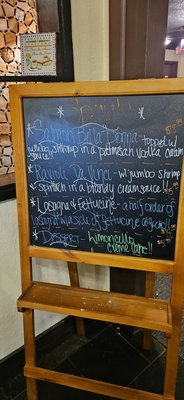 Specials
* Salmon Bella Penne - topped w/
jumbo shrimp in a parmesan vodka cream
sauce!!
* Ravioli Da Vinci - w/ jumbo shrimp
& spinach in a brandy cream sauce!!
* Lasagna & Fettuccine - a half order of
lasagna w/ a side of fettuccine alfredo!!
* Dessert - Limoncello
creme cake!!